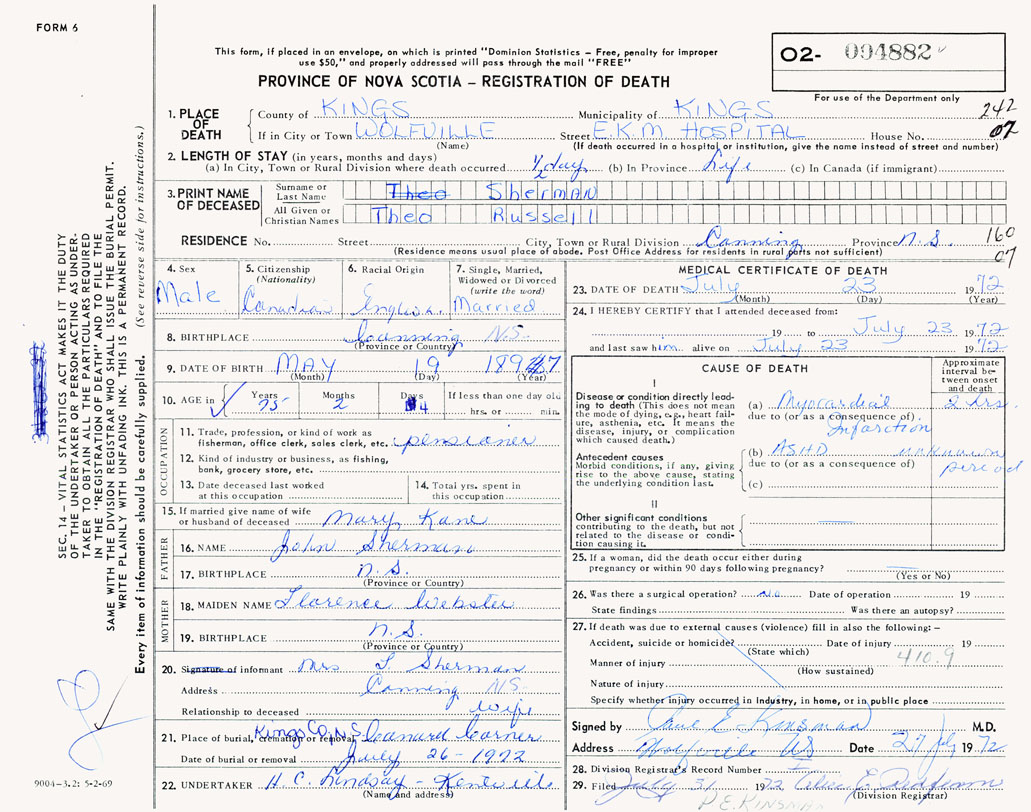 FORM 6
This form, if placed in an envelope, on which is printed "Dominion Statistics – Free, penalty for improper
use $50," and properly addressed will pass through the mail "FREE"
PROVINCE OF NOVA SCOTIA – REGISTRATION OF DEATH
O2- 094882
For use of the Department only
242
07
1. PLACE OF DEATH
County of KINGS Municipality of KINGS
If in City or Town WOLFVILLE Street E.K.M. HOSPITAL House No.
(Name) (If death occurred in a hospital or institution, give the name instead of street and number)
2. LENGTH OF STAY (in years, months and days)
(a) In City, Town or Rural Division where death occurred 1/2 day (b) In Province Life (c) In Canada (if immigrant)
3. PRINT NAME OF DECEASED
Surname or Last Name Theo Sherman
All Given or Christian Names Theo Russell
RESIDENCE No. Street City, Town or Rural Division Canning Province N.S. 160
(Residence means usual place of abode. Post Office Address for residents in rural parts not sufficient) 07
4. Sex
Male
5. Citizenship
(Nationality)
Canadian
6. Racial Origin
English
7. Single, Married,
Widowed or Divorced
(write the word)
Married
8. BIRTHPLACE Canning N.S.
(Province or Country)
9. DATE OF BIRTH MAY 19 1897
(Month) (Day) (Year)
10. AGE in Years 75 Months 2 Days 4 If less than one day old
hrs. or min.
OCCUPATION
11. Trade, profession, or kind of work as
fisherman, office clerk, sales clerk, etc. pensioner
12. Kind of industry or business, as fishing,
bank, grocery store, etc.
13. Date deceased last worked
at this occupation
14. Total yrs. spent in
this occupation
15. If married give name of wife
or husband of deceased Mary Kane
FATHER
16. NAME John Sherman
17. BIRTHPLACE N.S.
(Province or Country)
MOTHER
18. MAIDEN NAME Florence Webster
19. BIRTHPLACE N.S.
(Province or Country)
20. Signature of informant Mrs T Sherman
Address Canning N.S.
Relationship to deceased Wife
21. Place of burial, cremation or removal Kings CO, N.S. Canard Corner
Date of burial or removal July 26 - 1972
22. UNDERTAKER H. C. Lindsay - Kentville
(Name and address)
MEDICAL CERTIFICATE OF DEATH
23. DATE OF DEATH July 23 1972
(Month) (Day) (Year)
24. I HEREBY CERTIFY that I attended deceased from:
19 to July 23 1972
and last saw him alive on July 23 1972
CAUSE OF DEATH
Approximate interval between onset and death
I
Disease or condition directly leading to death (This does not mean the mode of dying, e.g., heart failure, asthenia, etc. It means the disease, injury, or complication which caused death.)
(a) Myocardial 2 hrs.
due to (or as a consequence of)
Infarction
Antecedent causes
Morbid conditions, if any, giving rise to the above cause, stating the underlying condition last.
(b) ASHD unknown
due to (or as a consequence of) period
(c)
II
Other significant conditions
contributing to the death, but not related to the disease or condition causing it.
25. If a woman, did the death occur either during
pregnancy or within 90 days following pregnancy?
(Yes or No)
26. Was there a surgical operation? No Date of operation 19
State findings Was there an autopsy?
27. If death was due to external causes (violence) fill in also the following: –
Accident, suicide or homicide? Date of injury 19
(State which)
Manner of injury 410.9
(How sustained)
Nature of injury
Specify whether injury occurred in industry, in home, or in public place
Signed by Paul E. Kinsman M.D.
Address Wolfville NS Date 27 July 1972
28. Division Registrar's Record Number
29. Filed July 31 1972
(Division Registrar)
P.E. KINSMAN
SEC. 14 – VITAL STATISTICS ACT MAKES IT THE DUTY
OF THE UNDERTAKER OR PERSON ACTING AS UNDER-
TAKER TO OBTAIN ALL THE PARTICULARS REQUIRED
IN THE "REGISTRATION OF DEATH" AND TO FILE THE
SAME WITH THE DIVISION REGISTRAR WHO SHALL ISSUE THE BURIAL PERMIT.
WRITE PLAINLY WITH UNFADING INK. THIS IS A PERMANENT RECORD.
Every item of information should be carefully supplied. (See reverse side for instructions.)
9004-3.2: 5-2-69